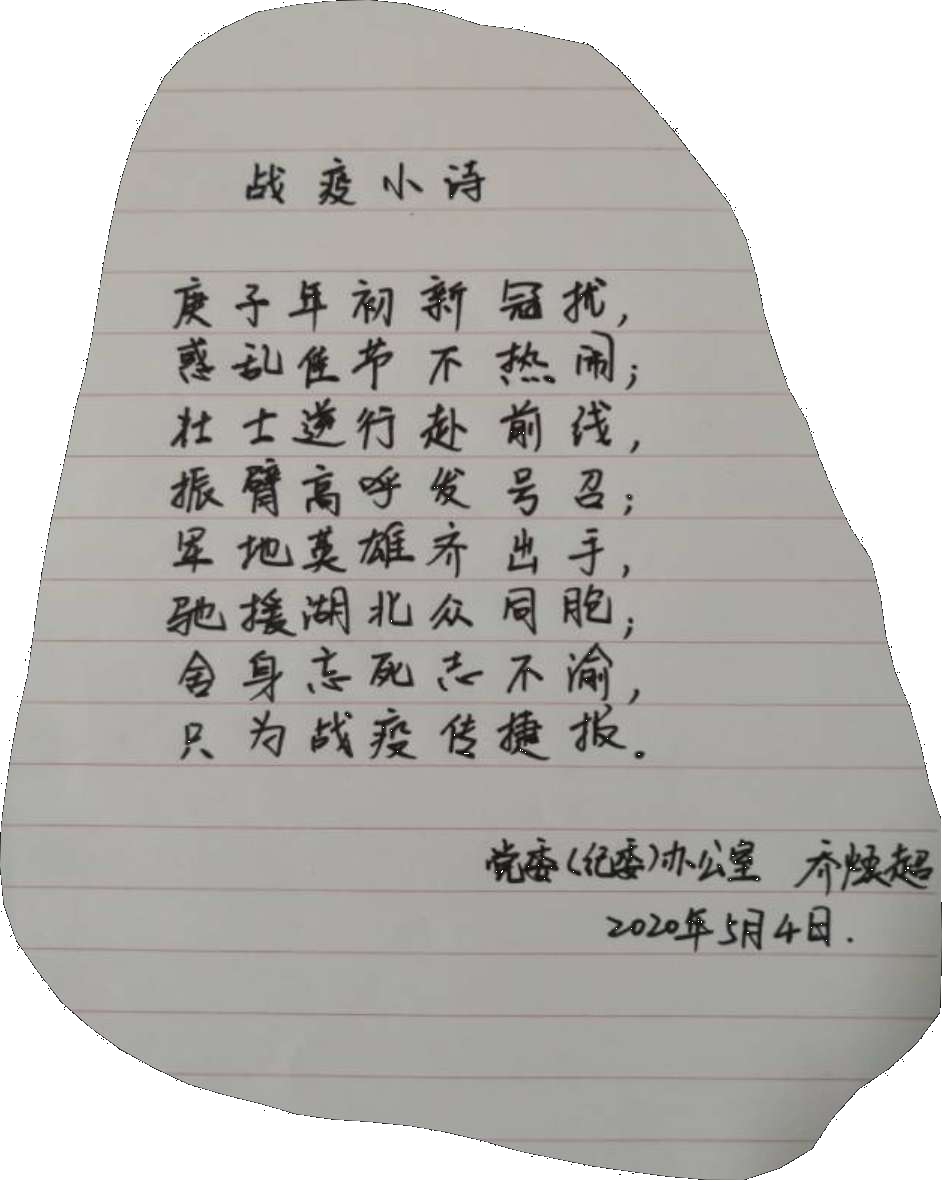 战疫小诗
庚子年初新冠扰,
惑乱佳节不热闹;
壮士逆行赴前线,
振臂高呼发号召;
军地英雄齐出手,
驰援湖北众同胞;
舍身忘死志不渝,
只为战疫传捷报。
党委(纪委)办公室 乔焕超
2020年5月4日.